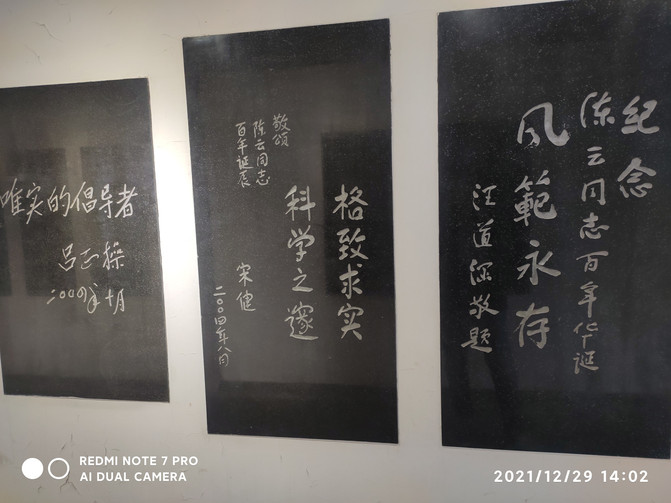 唯实的倡导者
吕正操
二〇〇四年十月
格致求实
科学之邃
敬颂
陈云同志
百年诞辰
宋健
二〇〇四年八月
纪念
陈云同志百年华诞
风範永存
汪道涵敬题
REDMI NOTE 7 PRO
AI DUAL CAMERA
2021/12/29 14:02